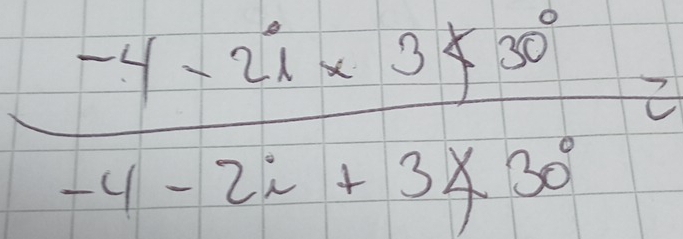 -4 - 2i × 3∡30°
-4 - 2i + 3∡30°